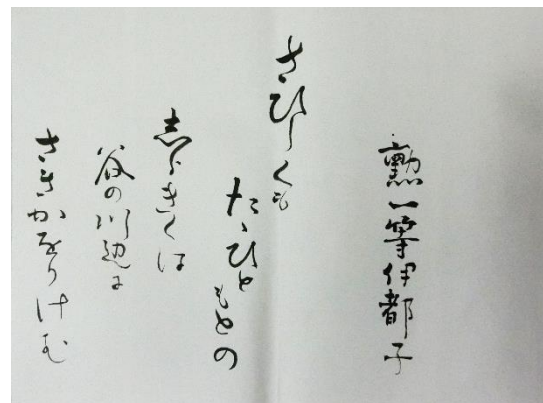 勲一等伊都子
さひしくも
たゝひともとの
志らきくは
谷の川辺に
さきかをりけむ